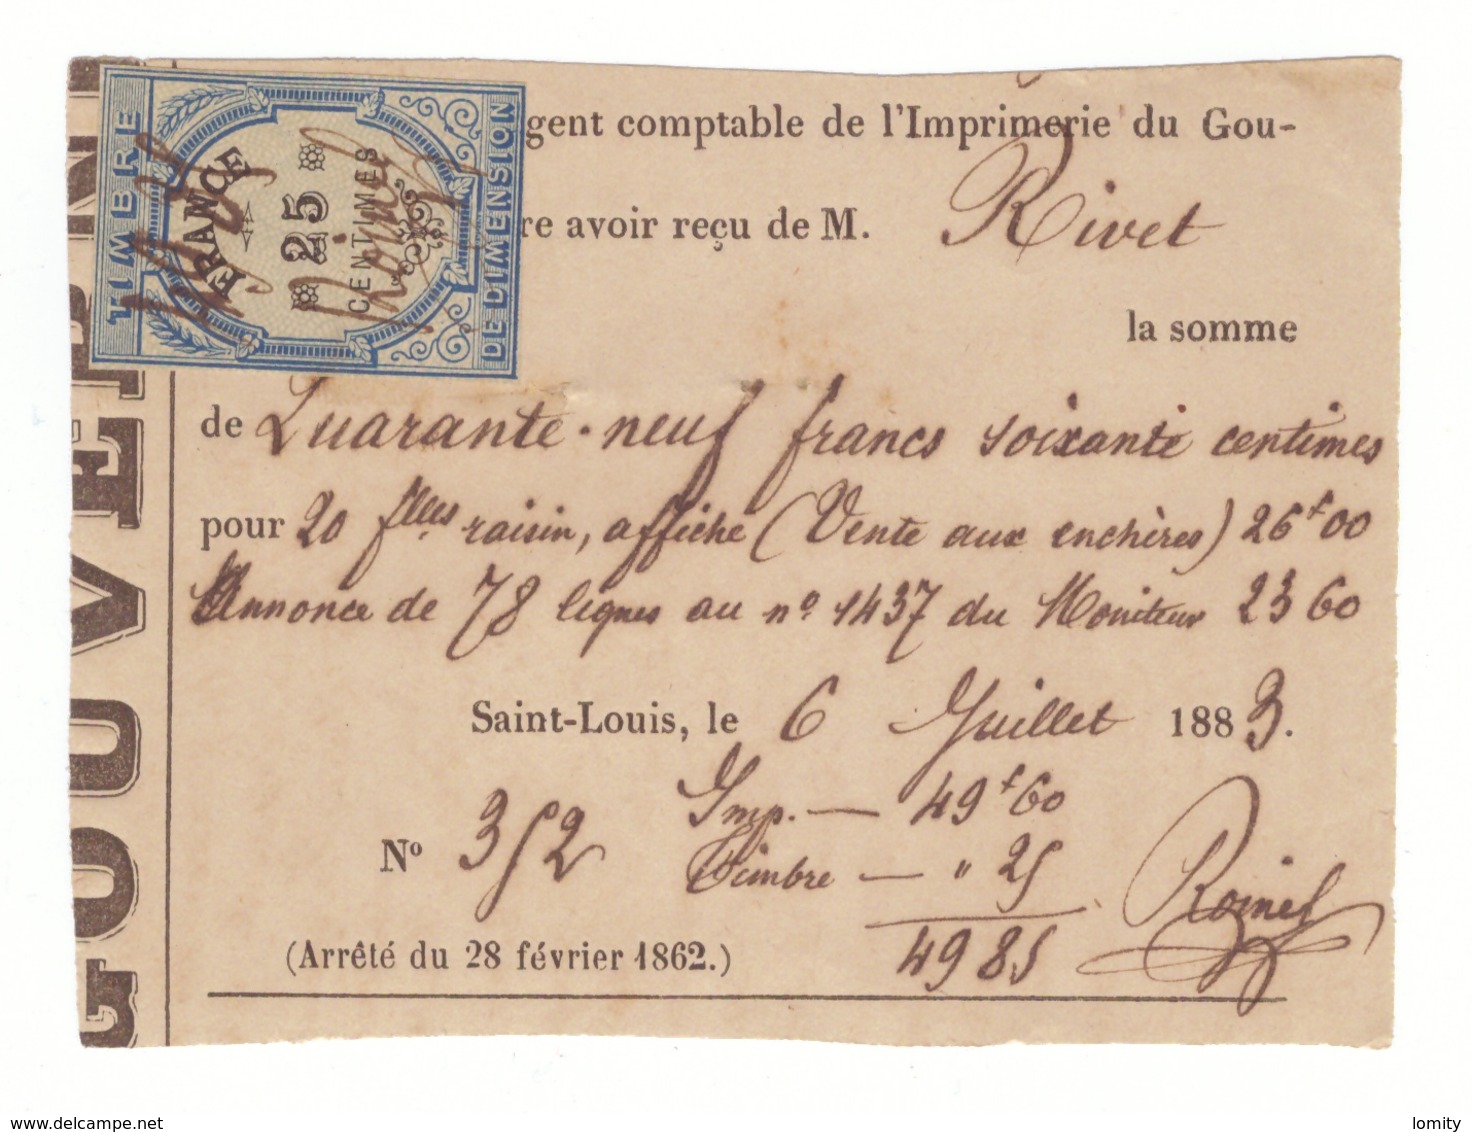 gent comptable de l'Imprimerie du Gou-
re avoir reçu de M. Rivet
la somme
de Quarante-neuf francs soixante centimes
pour 20 flles raisin, affiche (Vente aux enchères) 26f00
Annonce de 78 lignes au nº 1437 du Moniteur 23 60
Saint-Louis, le 6 Juillet 1883.
Imp. — 49f60
Nº 352
Timbre — " 25
49 85
(Arrêté du 28 février 1862.)
TIMBRE
FRANCE
25
CENTIMES
DE DIMENSION
GOUVERN
delcampe.net
lomity